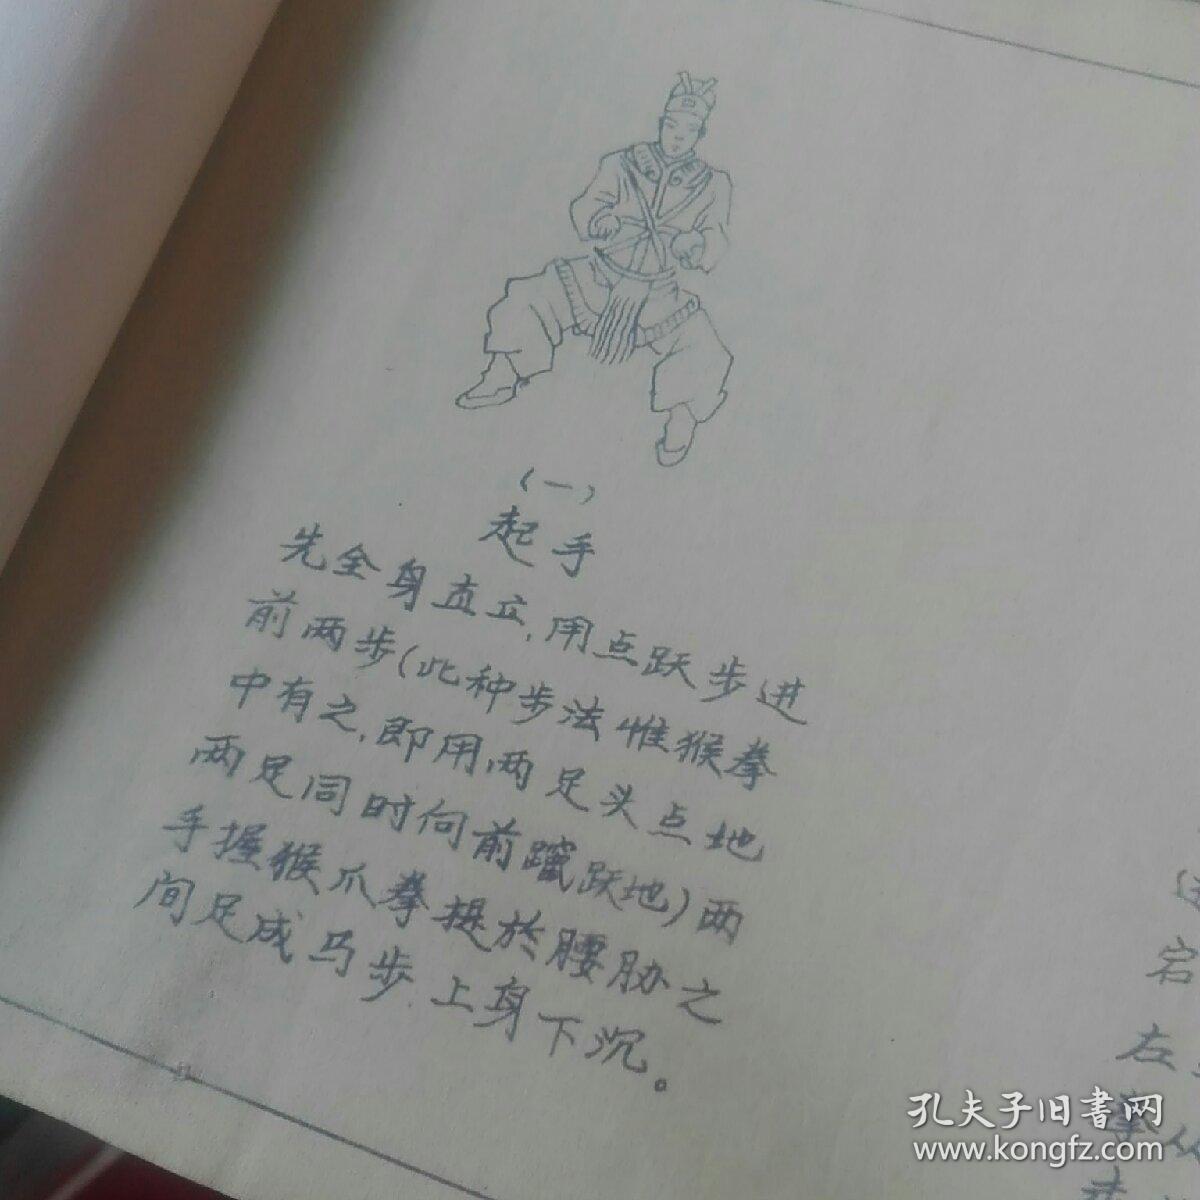 （一）
起手
先全身直立，用点跃步进
前两步（此种步法惟猴拳
中有之，即用两足头点地
两足同时向前蹿跃地）两
手握猴爪拳提於腰胁之
间足成马步.上身下沉。
宕
左
拳从
孔夫子旧書网
www.kongfz.com